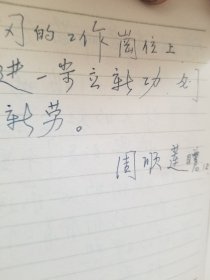 的工作岗位上
进一步立新功
新劳。
周顺莲